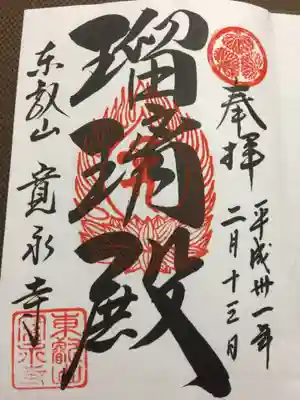 奉拝
平成卅一年
二月十三日
瑠璃殿
東叡山 寛永寺
東叡山
寛永寺